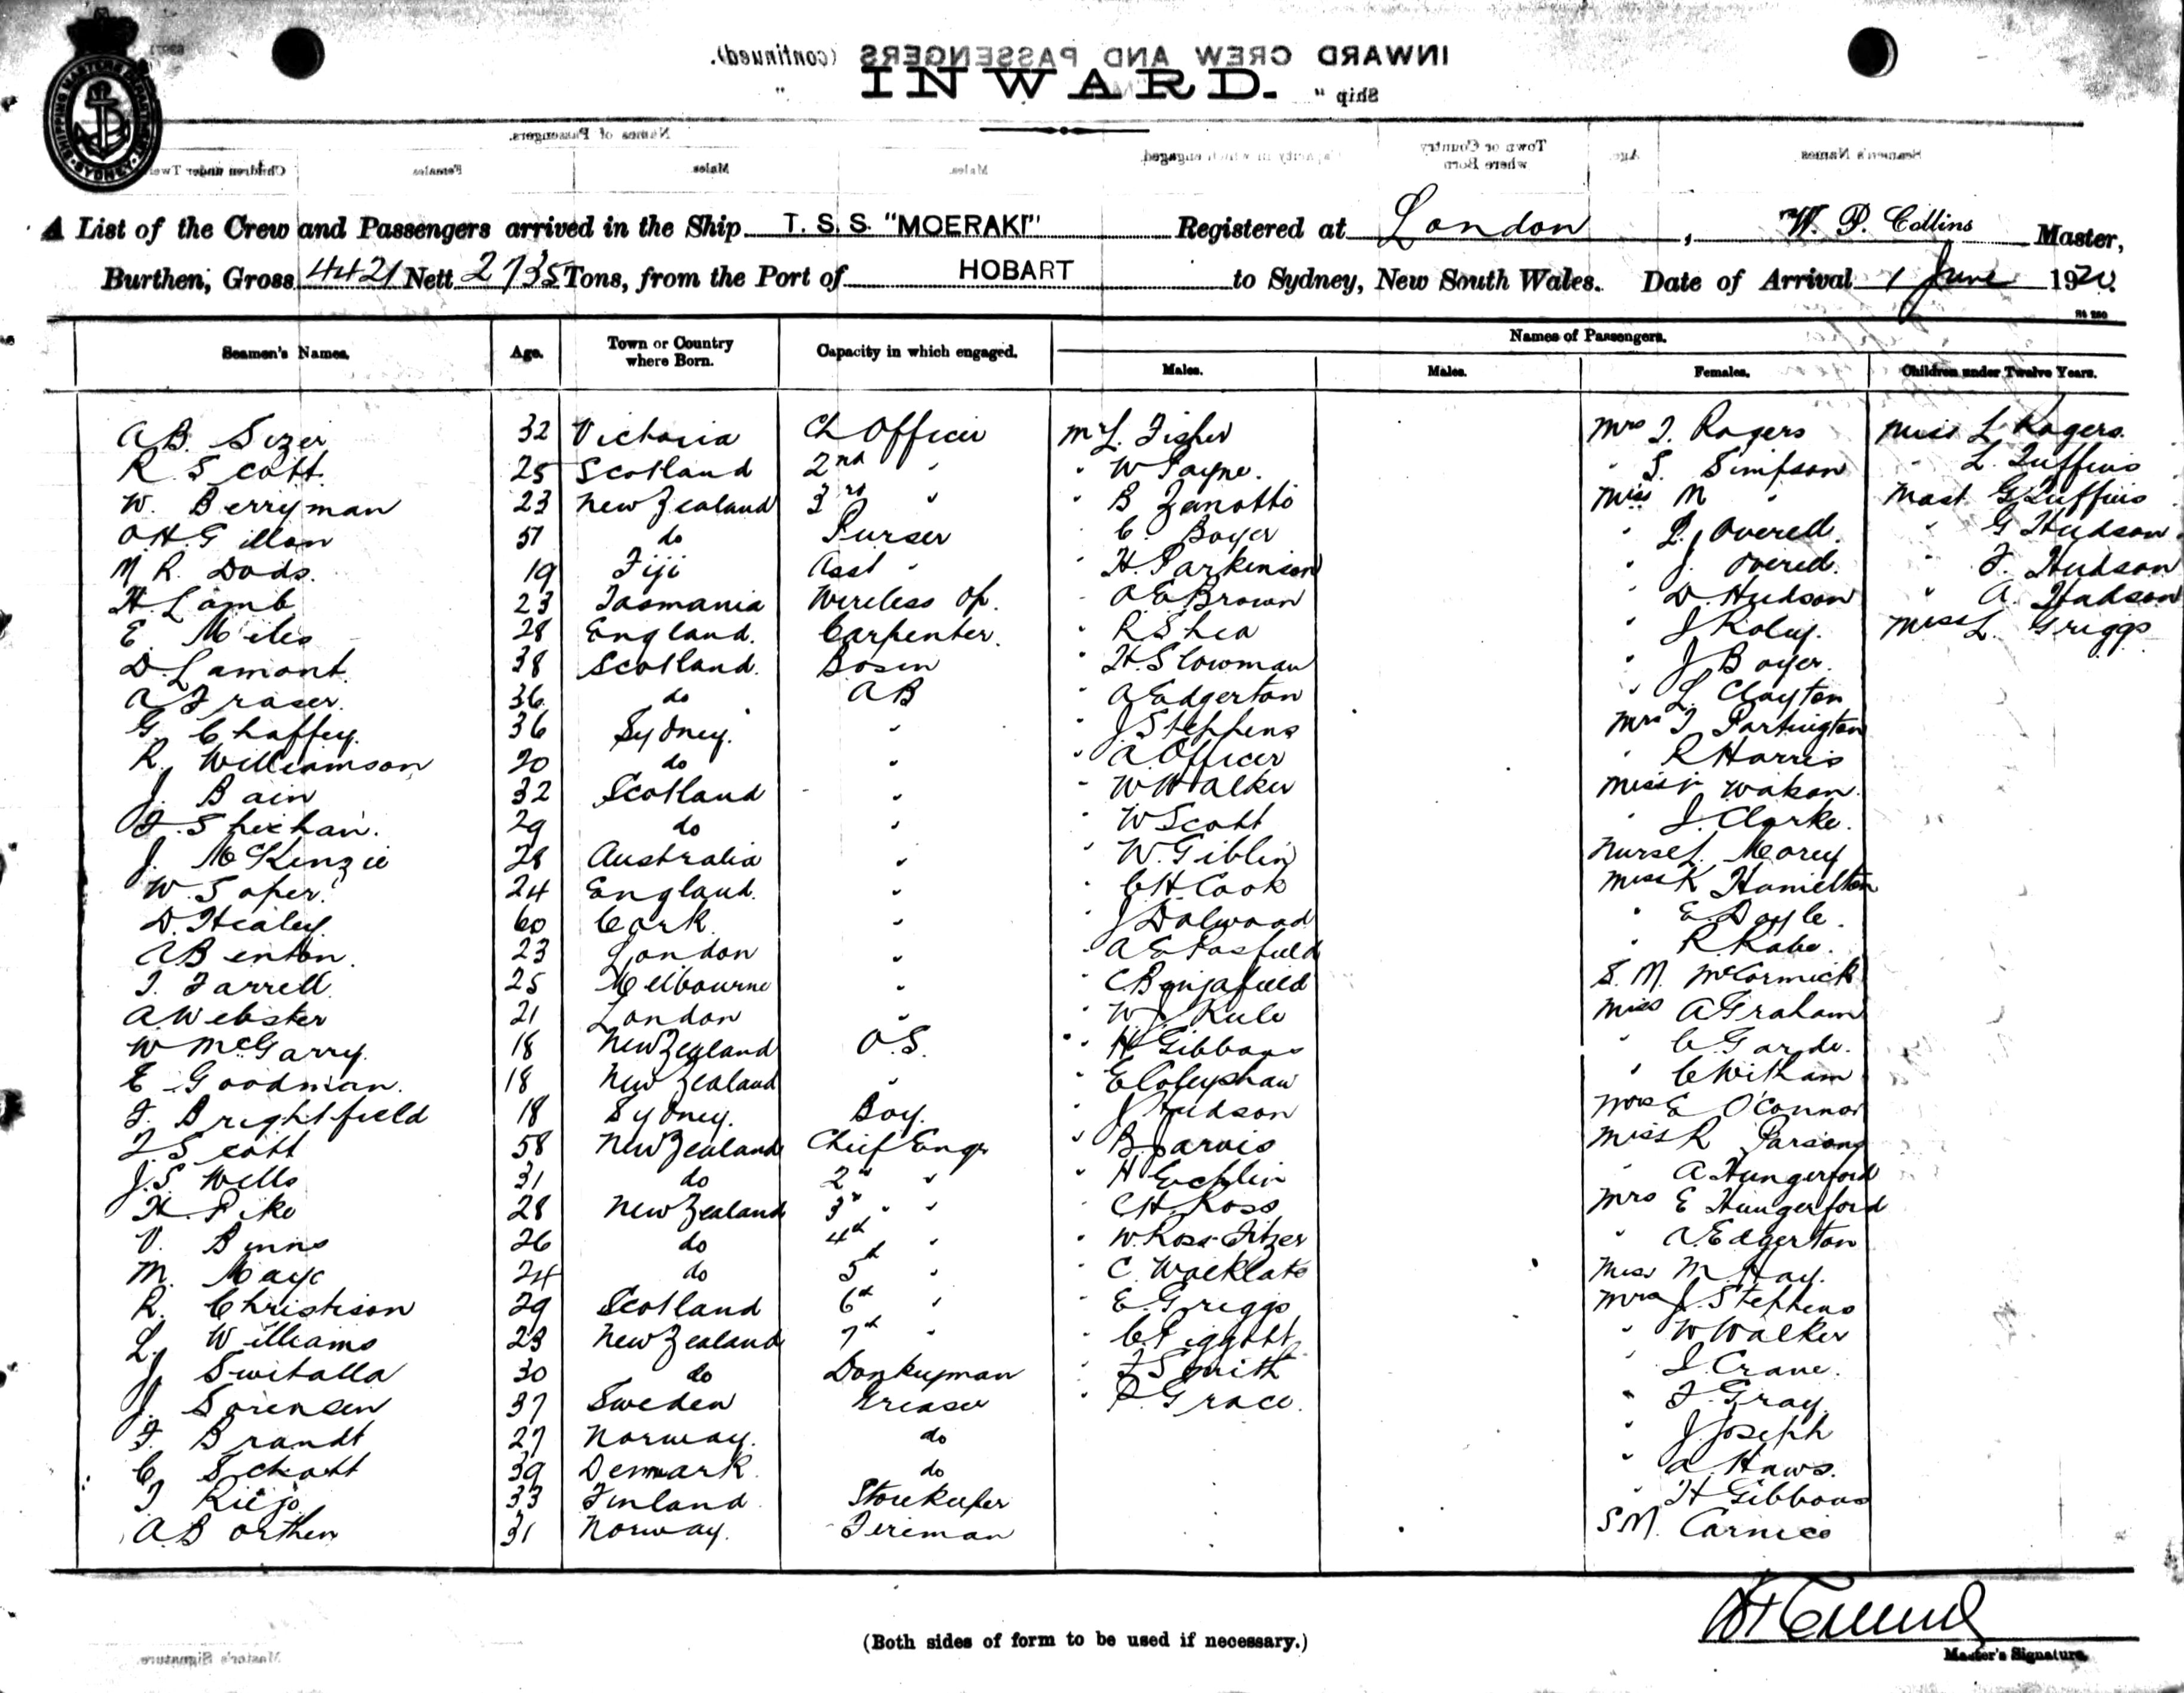 INWARD CREW AND PASSENGERS (continued).
INWARD.
Ship " "
SHIPPING MASTERS DEPARTMENT SYDNEY
Names of Passengers.
Children under Twe Females Males Males. Capacity in which engaged. Town or Country where Born Age. Seamen's Names
A List of the Crew and Passengers arrived in the Ship T. S. S. "MOERAKI" Registered at London , W. P. Collins Master,
Burthen, Gross 4421 Nett 2735 Tons, from the Port of HOBART to Sydney, New South Wales. Date of Arrival 1 June 1920.
Seamen's Names. Age. Town or Country where Born. Capacity in which engaged. Names of Passengers.
Males. Males. Females. Children under Twelve Years.
A B. Sizer 32 Victoria Ch Officer Mr L. Fisher Mrs T. Rogers Miss L Rogers.
R Scott. 25 Scotland 2nd " " W Payne. " S. Simpson " L. Tuffins
W. Berryman 23 New Zealand 3rd " " B Zanotto Miss M " Mast. G Tuffins
O.H. Gillon 51 do Purser " C. Boyer " L. Overell. " G Hudson
N R. Dods. 19 Fiji Asst " " H. Parkinson " J. Overell. " F. Hudson
H. Lamb 23 Tasmania Wireless Op. " A E Brown " D. Hudson " A. Hudson
E Miles 28 England. Carpenter. " R Shea " J Roley. Miss L. Griggs
D. Lamont. 38 Scotland. Bosin " H. Slowman " J Boyer.
A Fraser. 36 do AB " A Edgerton " L. Clayton
G. Chaffey. 36 Sydney. " " J Stephens Mrs T Partington
R. Williamson 20 do " " A. Officer " R Harris
J. Bain 32 Scotland " " W Walker Miss Watson.
F. Sheehan. 29 do " " W Scott " J. Clarke.
J. McKenzie 28 Australia " " W. Giblin Nurse L. Morey
W. Soper. 24 England. " " C H Cook Miss K Hamilton
D. Healey. 60 Cork. " " J Dalwood " E. Doyle.
A Benton. 23 London " " A E Pasfield " R. Rabe.
T. Farrell. 25 Melbourne " " C Benjafield S. M. McCormick
A. Webster 21 London " " W J Rule Miss A Graham
W McGarry. 18 New Zealand O.S. " H Gibbons " C. Garde.
E Goodman. 18 New Zealand " " E Coleyshaw " C Witham
F. Brightfield 18 Sydney. Boy. " J Hudson Mrs E O'Connor
T. Scott 58 New Zealand Chief Engr " B Jarvis Miss R Parsons
J.S. Wells 31 do 2nd " " H Echlin " A. Hungerford
H. Pike 28 New Zealand 3rd " " C H. Ross Mrs E Hungerford
V. Binns 26 do 4th " " W. Ross-Fitzer " A. Edgerton
M. Maye 24 do 5th " " C. Miss M. Hay.
R. Christison 29 Scotland 6th " " E. Griggs Mrs J. Stephens
L. Williams 23 New Zealand 7th " " C. Piggott " W Walker
J. Switalla 30 do Donkeyman " F Smith " I. Crane.
J. Sorensen 37 Sweden Greaser " P. Grace. " F. Gray.
F. Brandt 27 Norway. do " J. Joseph
C. Sckott 39 Denmark. do " A. Haws.
T Riejo 33 Finland Storekeeper " H Gibbons
A. Borthen 31 Norway. Fireman S M. Carnico
(Both sides of form to be used if necessary.)
Master's Signature.
Master's Signature.